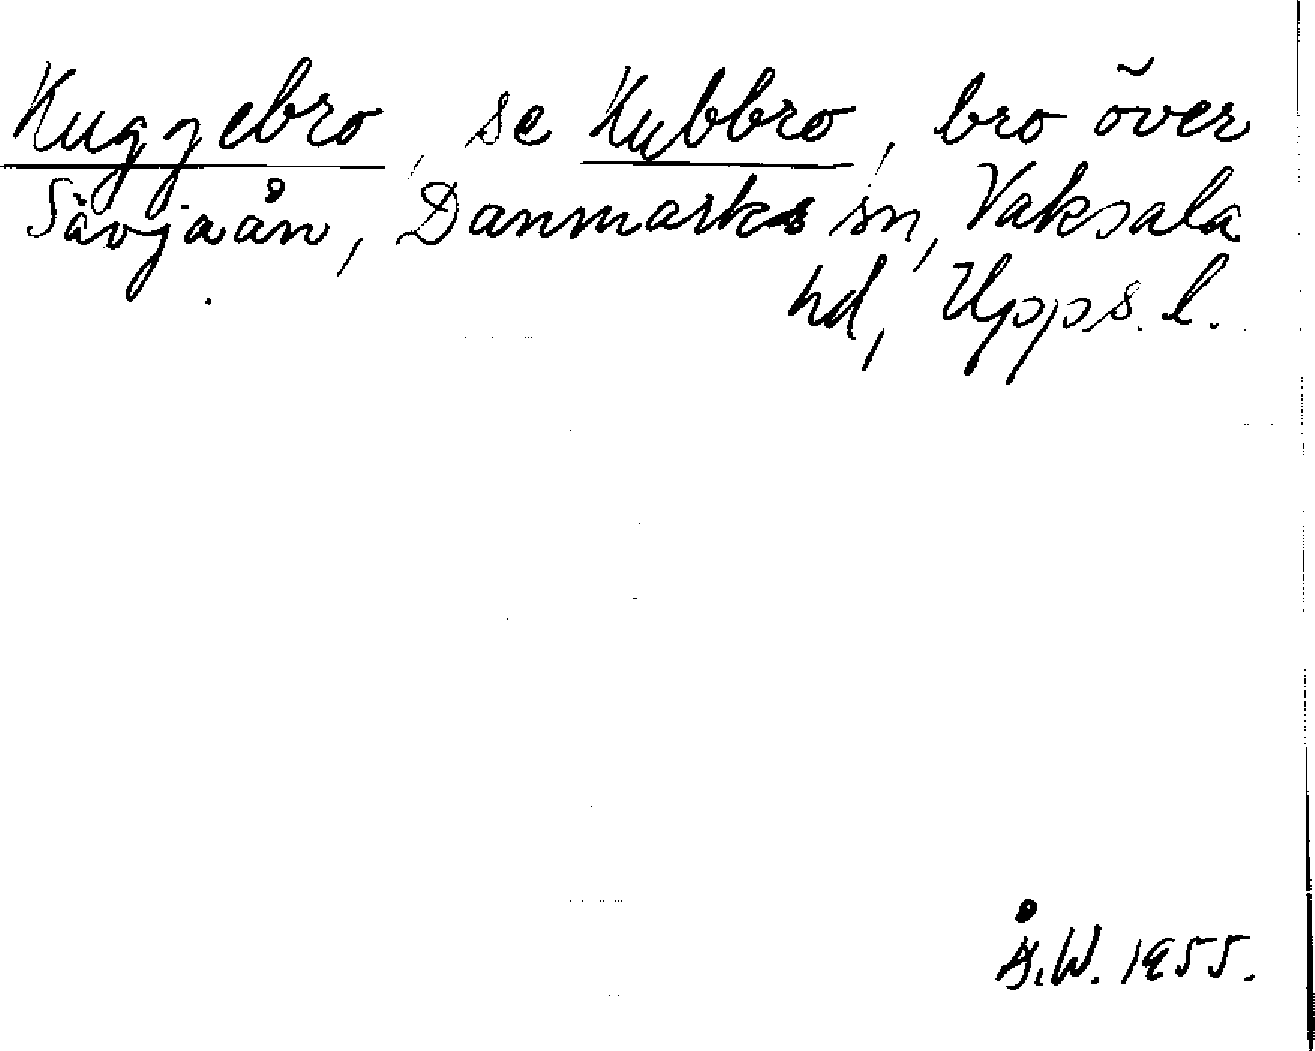 Kuggebro, se Kubbbro, bro över
Sävjaån, Danmarks sn, Vaksala
hd, Upps. l.
Å.W. 1955.